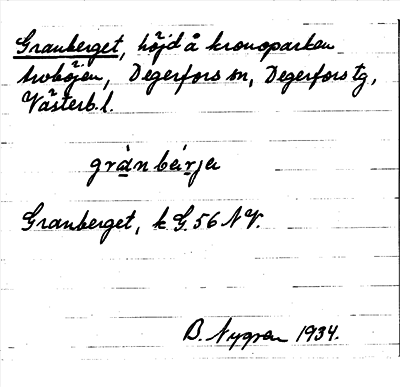 Granberget, höjd å kronoparken
Degerfors sn, Degerfors tg,
Västerb. l.
Granberget, k G. 56 NV.
B. Nygren 1934.